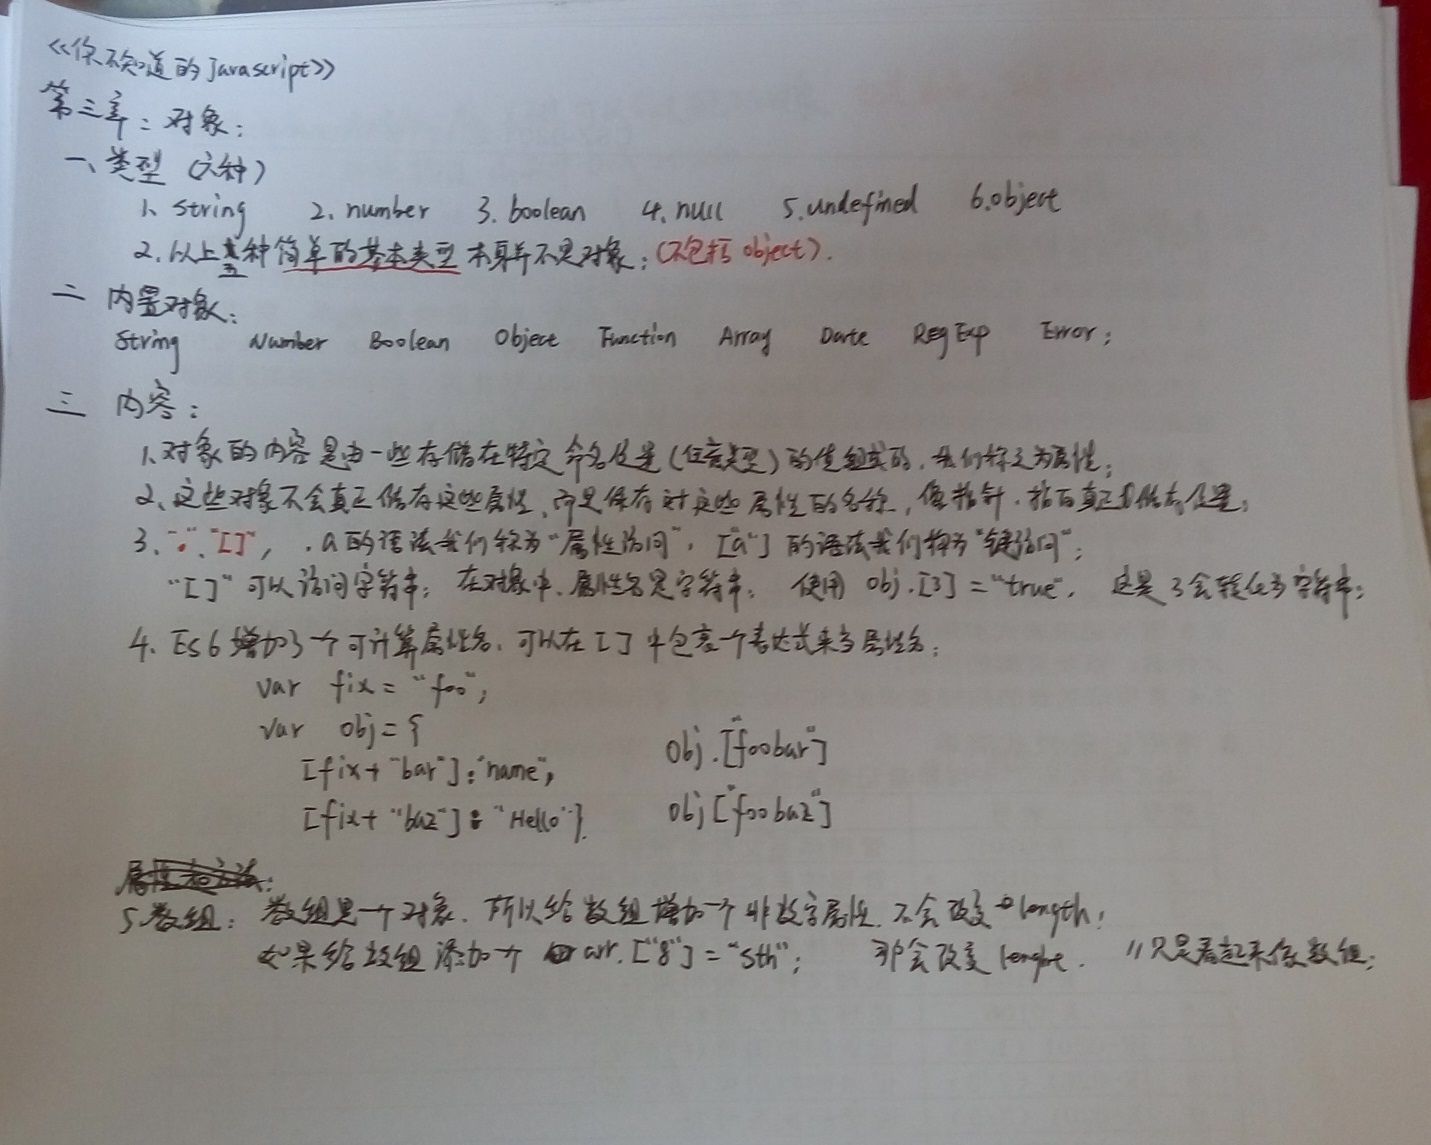 <<你不知道的Javascript>>
第三章：对象：
一、类型（六种）
1、string 2、number 3、boolean 4、null 5.undefined 6.object
2、以上五种简单的基本类型本身并不是对象；(不包括object).
二 内置对象：
String Number Boolean Object Function Array Date RegExp Error；
三 内容：
1、对象的内容是由一些存储在特定命名位置(任意类型)的值组成的，我们称之为属性；
2、这些对象不会真正储存这些属性，而是保存对这些属性的名称，像指针，指向真正储存位置；
3、"."、"[]"，.a的语法我们称为"属性访问"，["a"]的语法我们称为"键访问"；
"[]"可以访问字符串；在对象中、属性名是字符串；使用 obj.[3]="true"，这是3会转化为字符串；
4、ES6增加了一个可计算属性名，可以在[]中包裹一个表达式来当属性名；
var fix = "foo"；
var obj = {
[fix+"bar"]:"name", obj.["foobar"]
[fix+"baz"]: "Hello"} obj["foobaz"]
5、数组：数组是一个对象，所以给数组增加一个非数字属性，不会改变length；
如果给数组添加一个 arr.["8"]="sth"； 那会改变length. //只是看起来像数组；